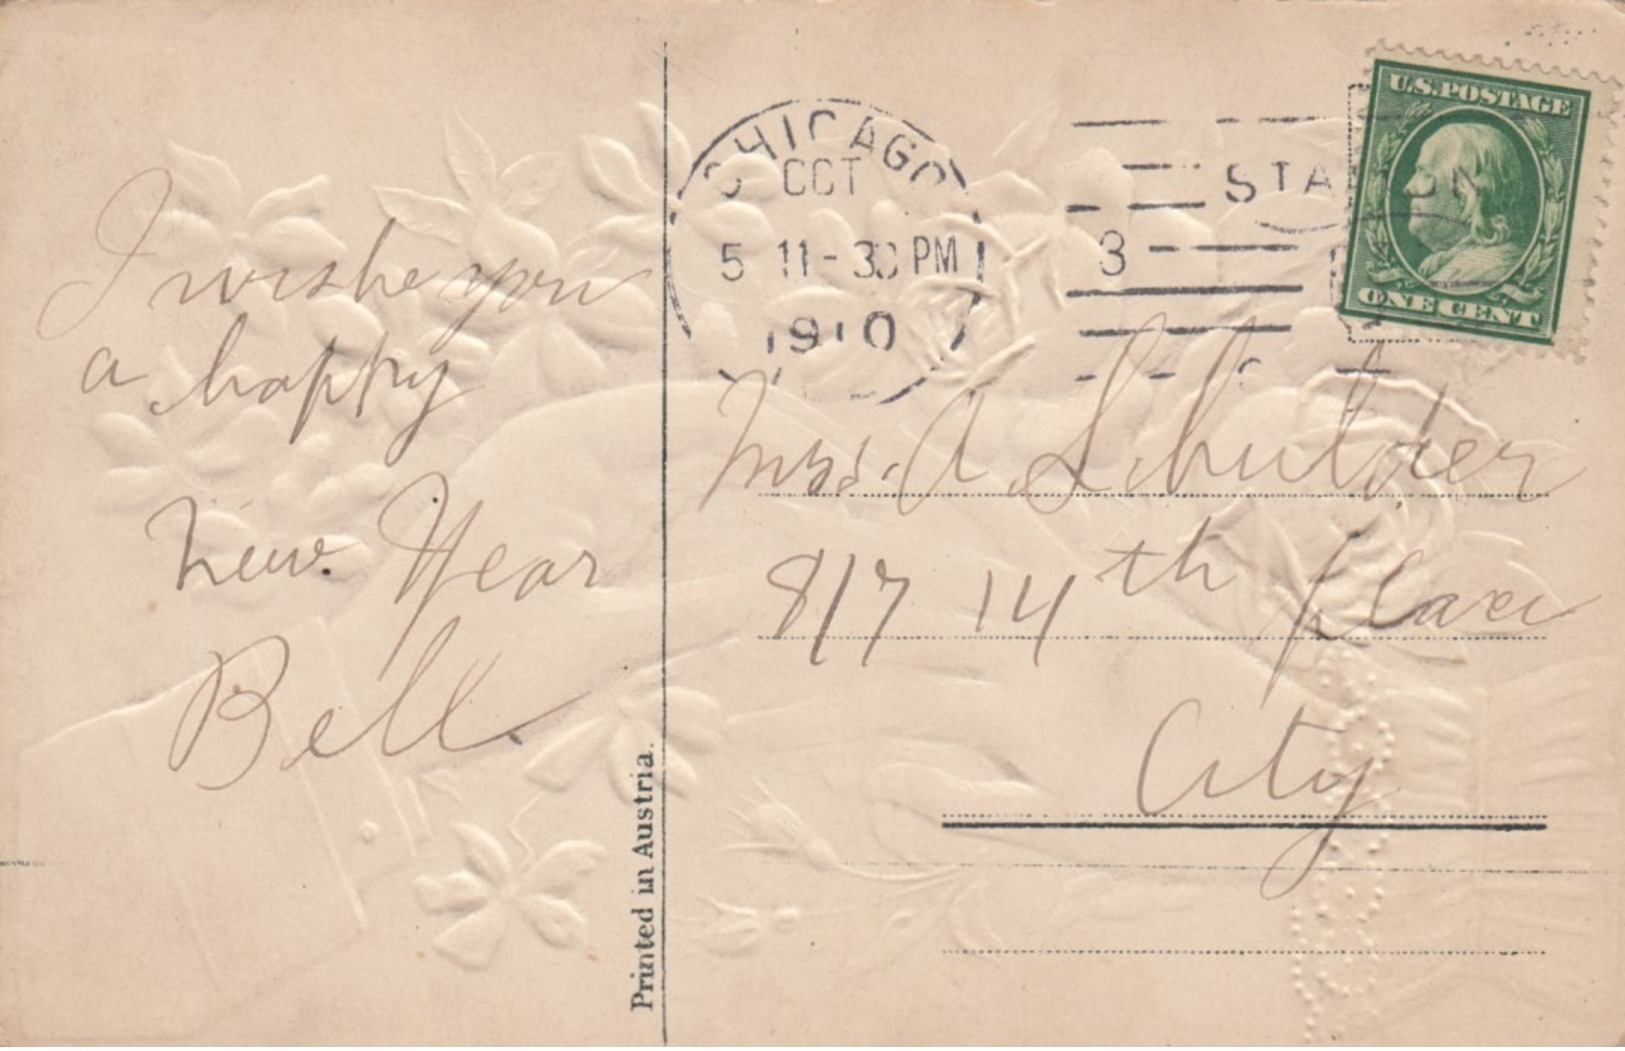 I wishe you
a happy
New. Year
Bell.
Printed in Austria.
CHICAGO
OCT
5 11-30 PM
1910
3
STATION
U.S. POSTAGE
ONE CENT
Mrs. A
817 14th place
City